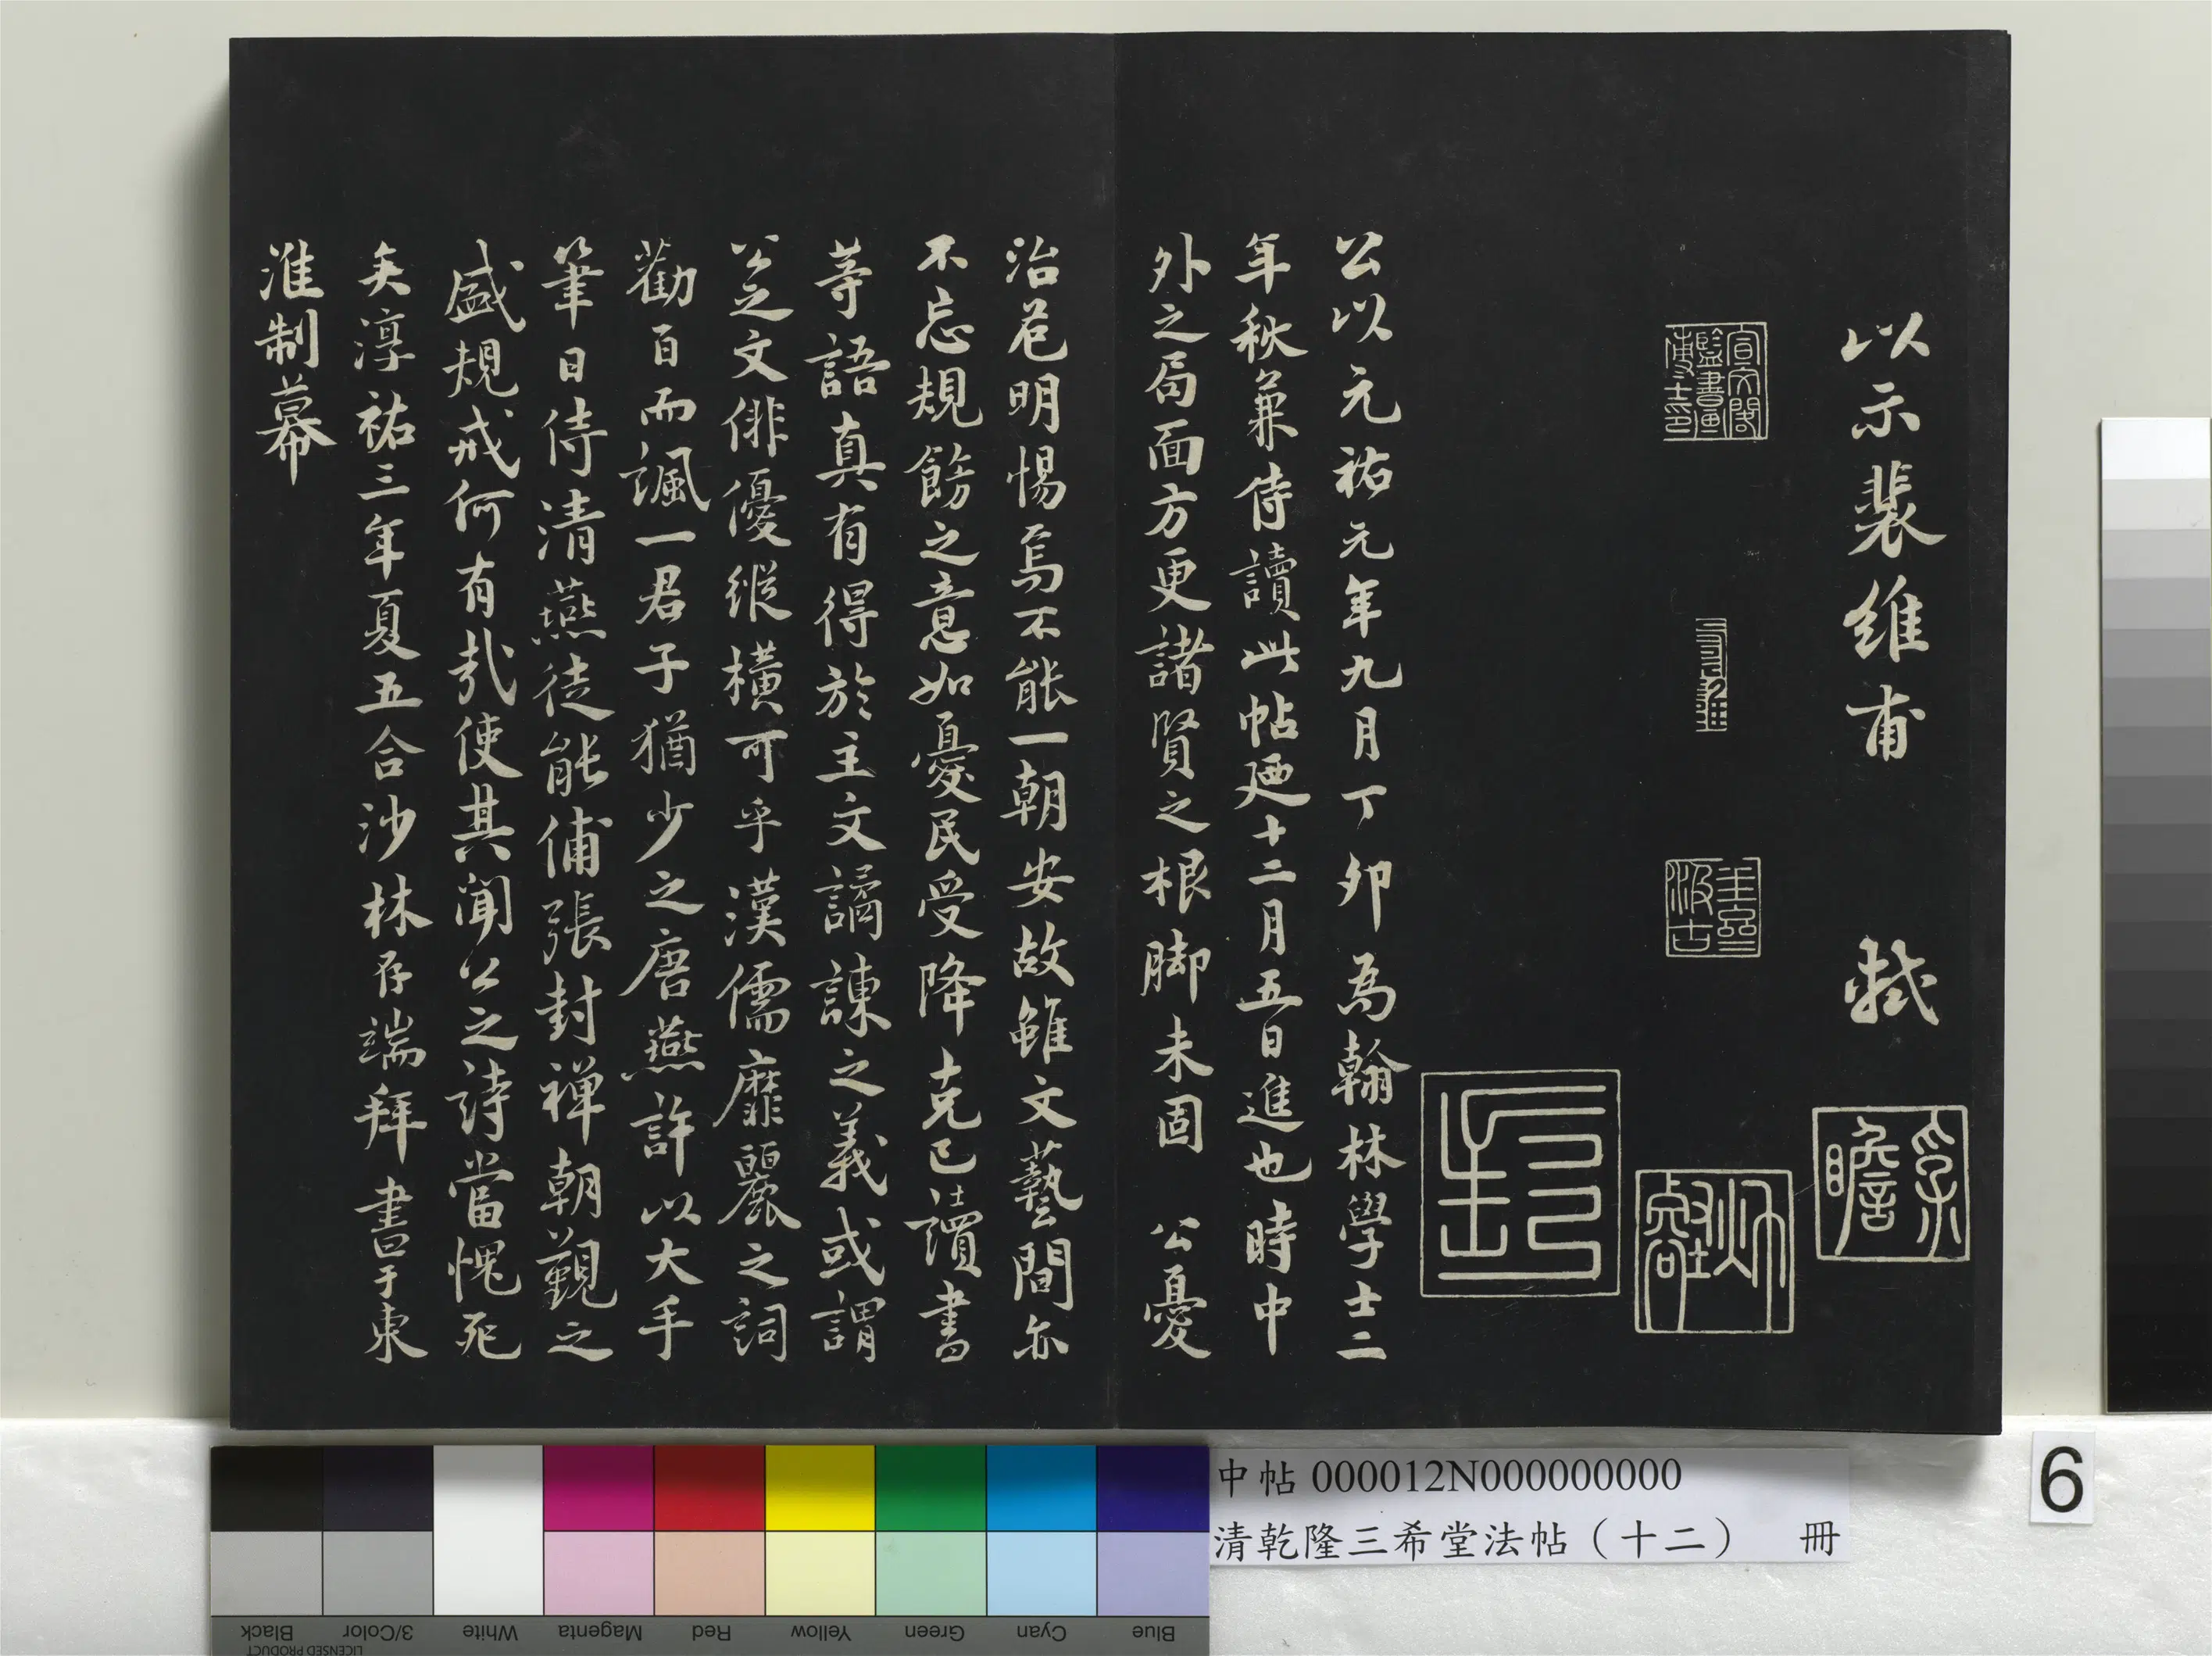 以示裴維甫 軾
宣文閣
監書畫
博士印
公以元祐元年九月丁卯為翰林學士二
年秋兼侍讀此帖廼十二月五日進也時中
外之局面方更諸賢之根脚未固 公憂
治危明惕焉不能一朝安故雖文藝間亦
不忘規飭之意如憂民受降克己讀書
等語真有得於主文譎諫之義或謂
公之文俳優縱橫可乎漢儒靡麗之詞
勸百而諷一君子猶少之唐燕許以大手
筆日侍清燕徒能俌張封禪朝覲之
盛規戒何有哉使其聞公之詩當愧死
矣淳祐三年夏五合沙林存端拜書于東
淮制幕
中帖 000012N000000000
清乾隆三希堂法帖（十二） 冊
6
Black
3/Color
White
Magenta
Red
Yellow
Green
Cyan
Blue
LICENSED PRODUCT